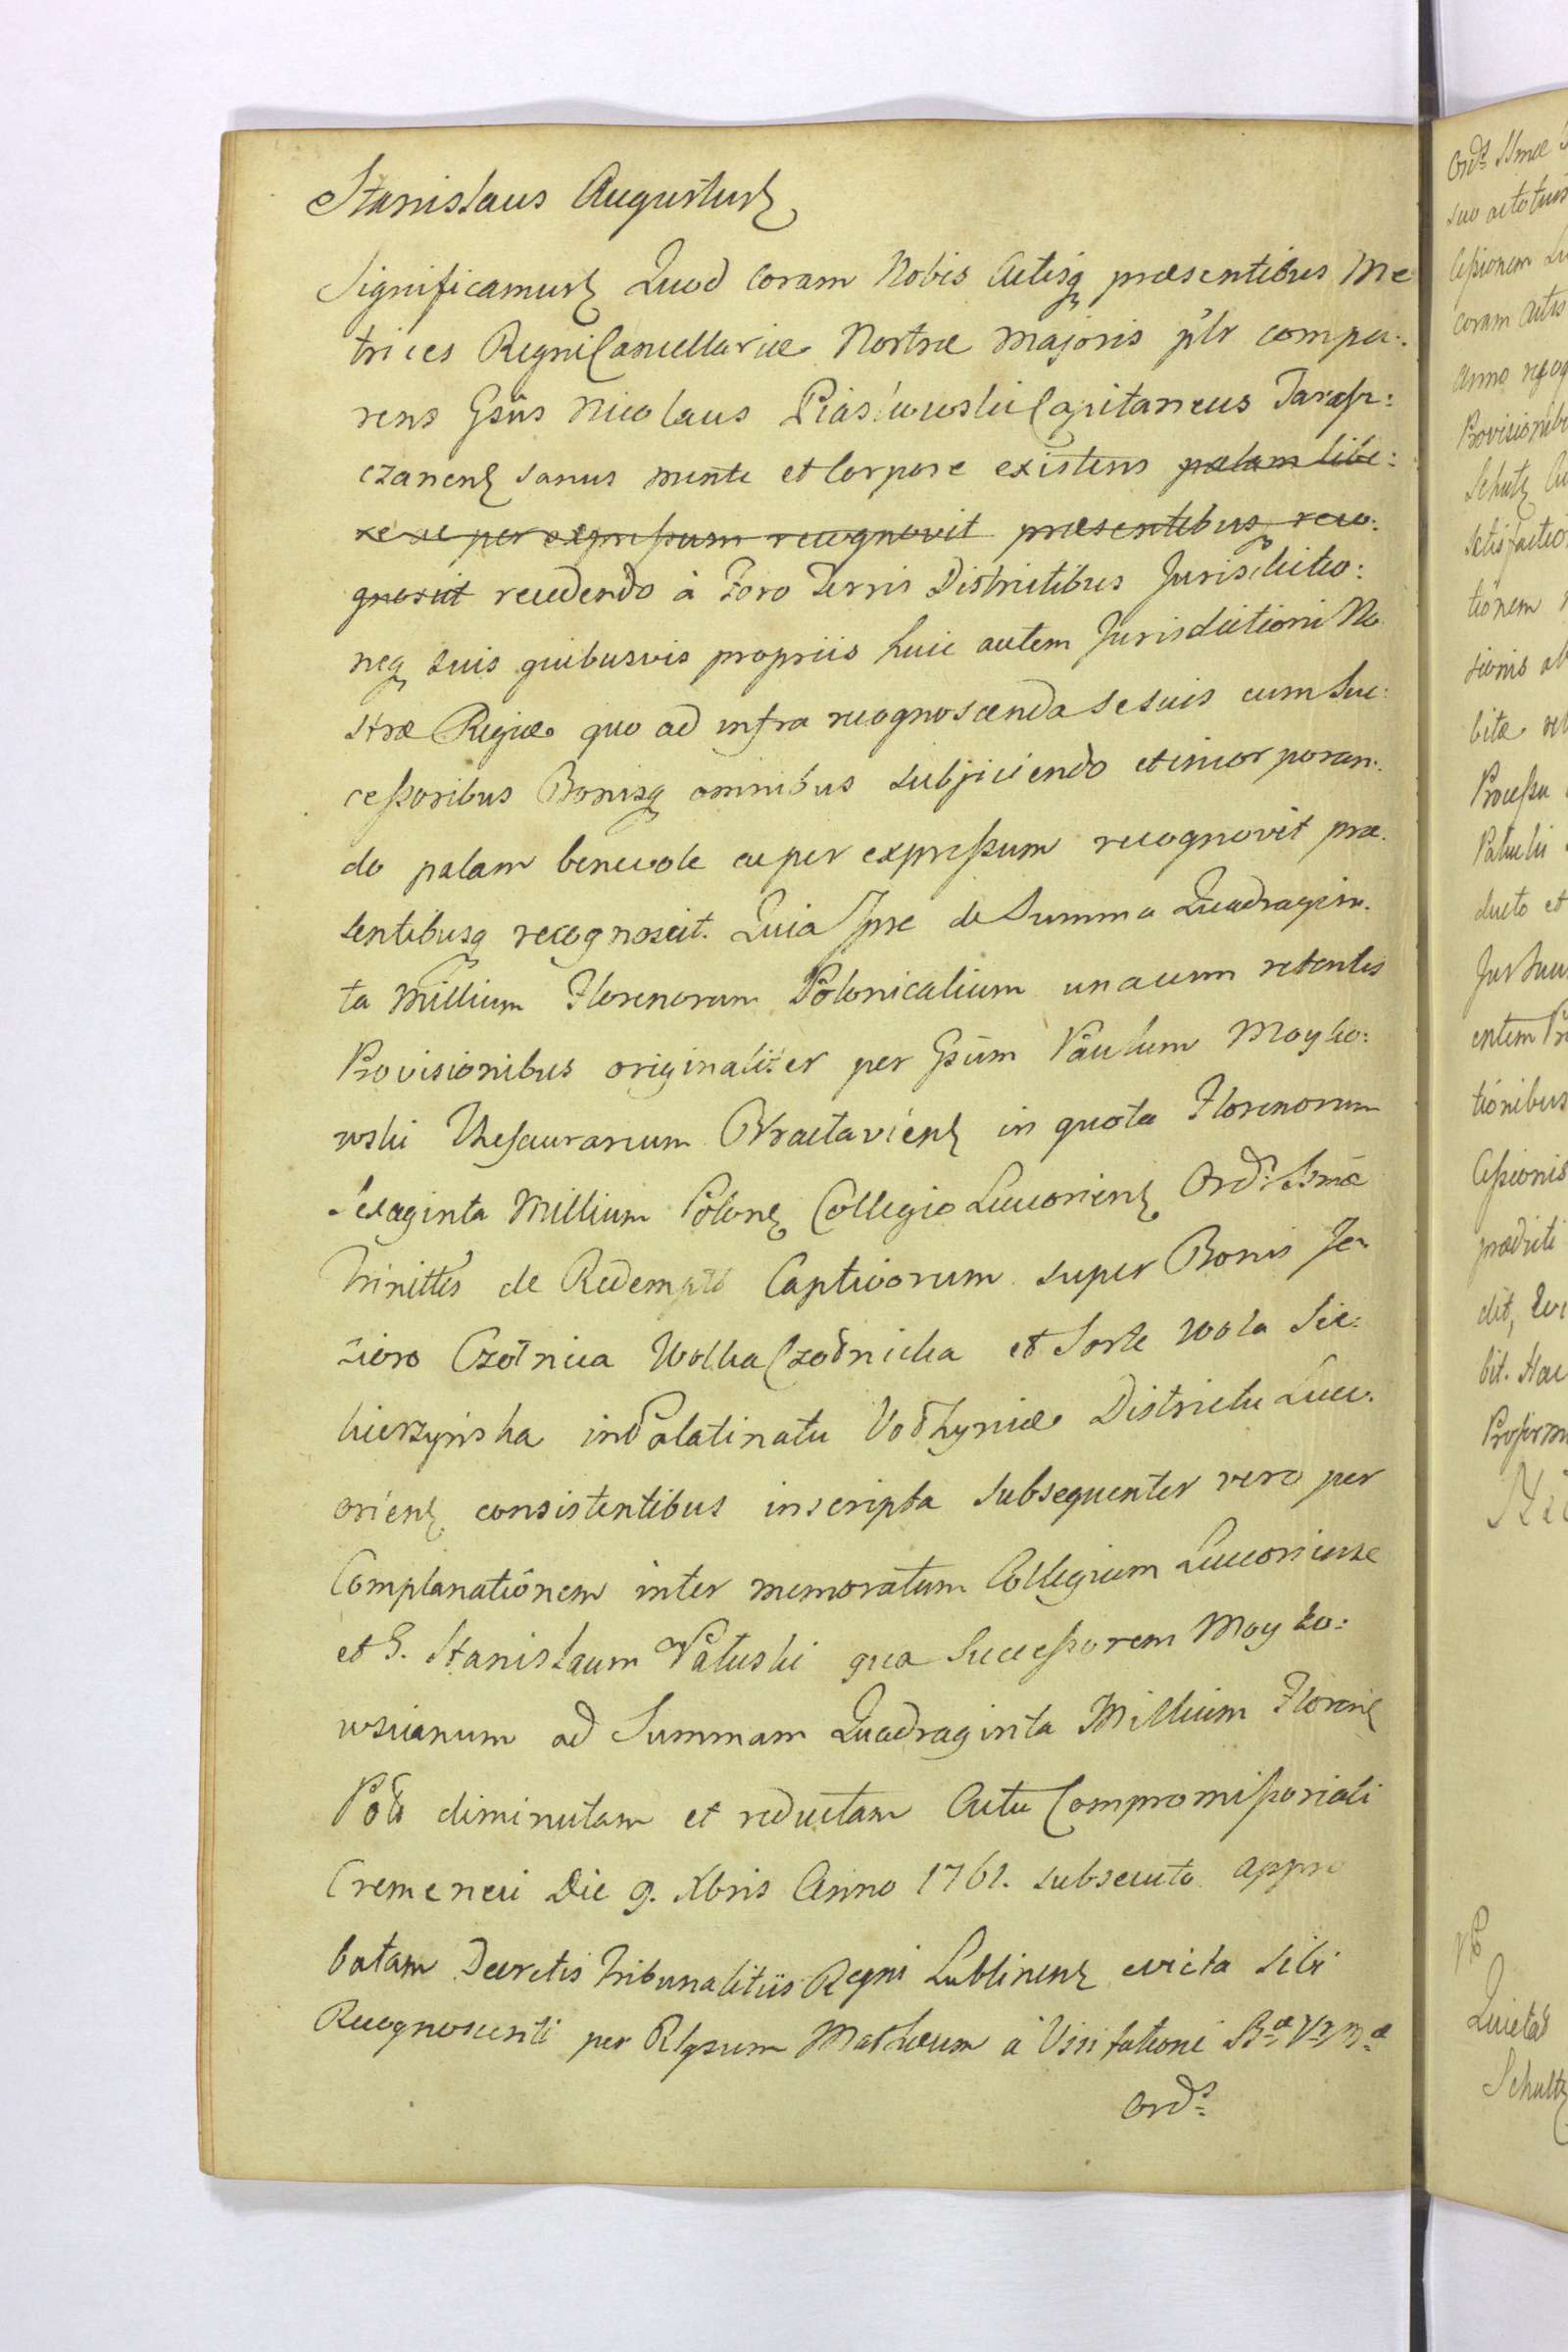 Stanislaus Augustus
Significamus Quod Coram Nobis Actisq praesentibus Me
trices Regni Cancellariae Nostrae Majoris plr compa:
rens Gsus Nicolaus Piaskowski Capitaneus Taraszt:
czanens sanus mente et Corpore existens palam libe:
re ac per expressum recognovit praesentibusq reco:
gnoscit recedendo à Foro Terris Districtibus Jurisdictio:
neq suis quibusvis propriis huic autem Jurisdictioni No
strae Regiae quo ad infra recognoscenda se suis cum Suc:
cessoribus Bonisq omnibus subjiciendo et incorporan:
do palam benevole ac per expressum recognovit prae
sentibusq recognoscit. Quia Ipse de Summa Quadragin:
ta Millium Florenorum Polonicalium unacum retentis
Provisionibus originaliter per Gsum Paulum Mayko:
wski Thesaurarium Bractaviens in quota Florenorum
Sexaginta Millium Polon Collegio Luceoriens Ordis Ssmae
Trinittis de Redempte Captivorum super Bonis Je
zioro Czołnica Wolka Czołnicka et Sorte Wola Sie:
kierzynska in Palatinatu Volhyniae Districtu Luce:
oriens consistentibus inscripta subsequenter vero per
Complanationem inter memoratum Collegium Luceoriense
et G. Stanislaum Pałuski qua Successorem Mayko:
wscianum ad Summam Quadraginta Millium Floren
Pol diminutam et reductam Actu Compromissoriali
Cremeneci Die 9. Xbris Anno 1761. subsecuto appro
batam Decretis Tribunalitiis Regni Lublinens evicta sibi
Recognoscenti per Rlgsum Mathaeum à Visitatione B. V. M.
Ordis